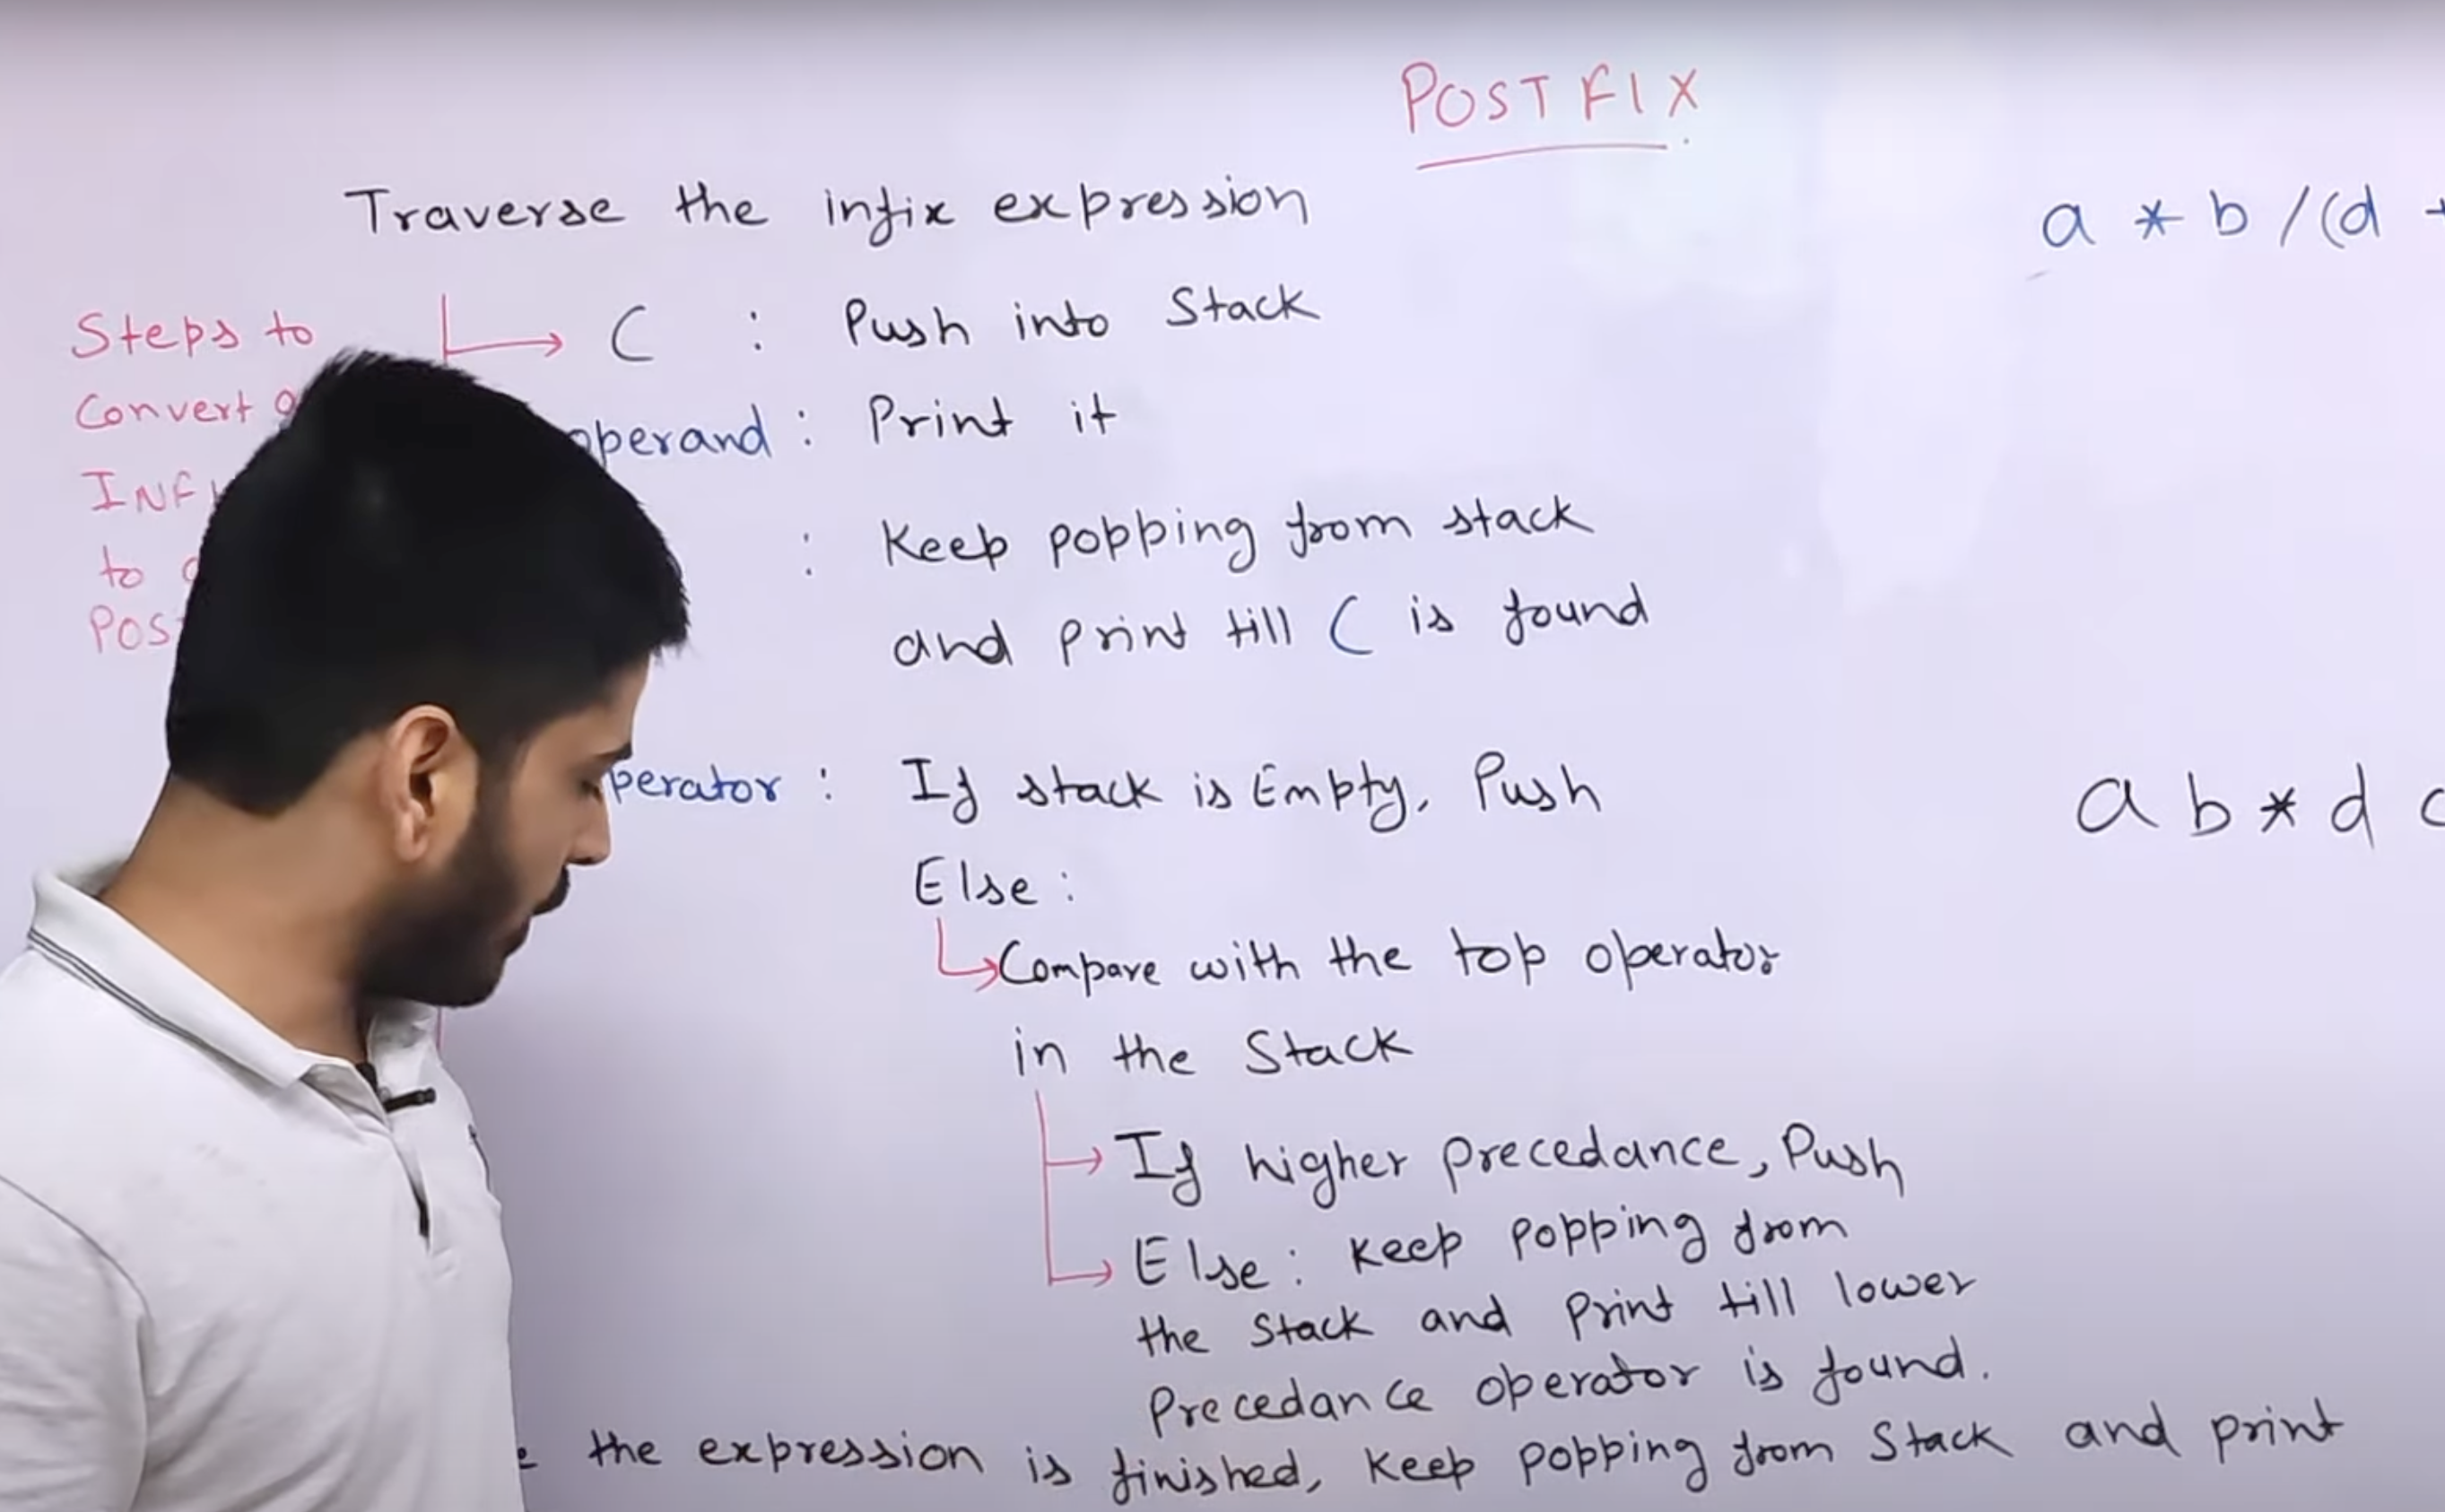 POSTFIX
Traverse the infix expression
a * b / (d +
Steps to
Convert
( : Push into Stack
operand : Print it
to
: Keep popping from stack
and print till ( is found
perator : If stack is Empty, Push
a b * d
Else :
Compare with the top operator
in the Stack
If higher precedance, Push
Else : Keep popping from
the Stack and Print till lower
Precedance operator is found.
the expression is finished, Keep popping from Stack and print